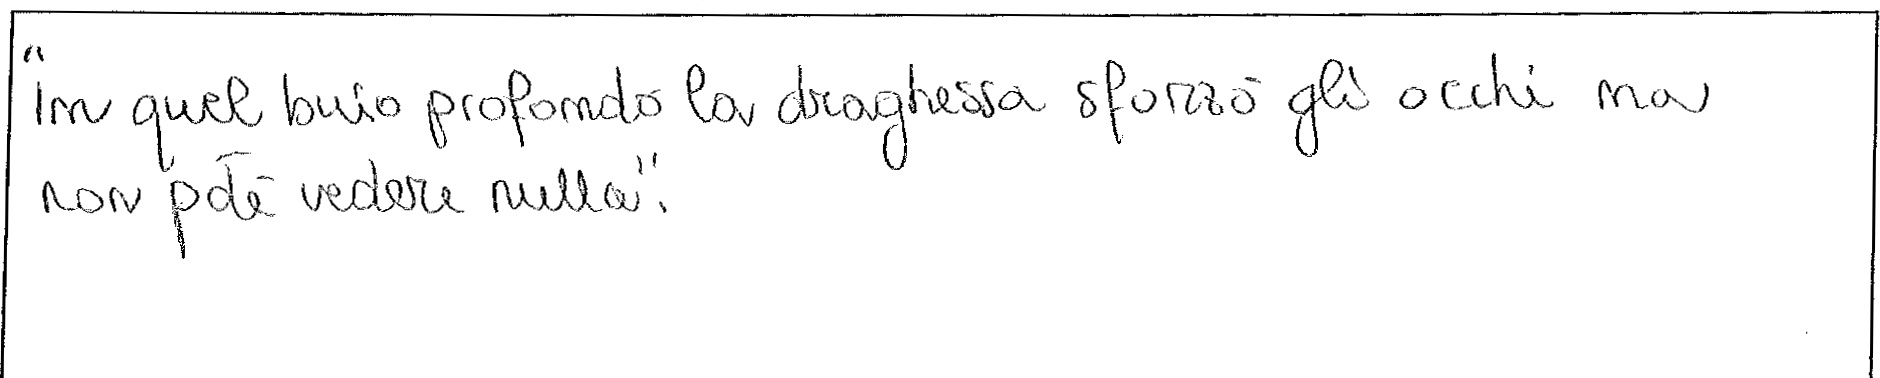 "In quel buio profondo la draghessa sforzò gli occhi ma
non poté vedere nulla".